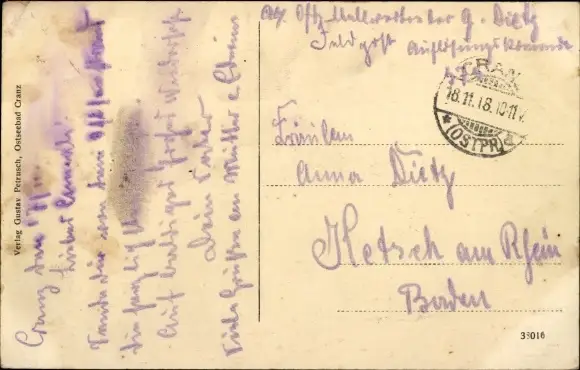 Verlag Gustav Petrusch, Ostseebad Cranz
Cranz den
Liebes Annerl!
Sende dir von dem
die herzlichst
Auf baldiges frohes Wiedersehn
Dein Vater
Viele Grüße an Mutter
Abs. Offz. Stellvertreter G. Dietz
Feldpost Auflösungskommando
CRANZ
18.11.18.10-11V.
* (OSTPR) d
Fräulein
Anna Dietz
Ketsch am Rhein
Baden
33016